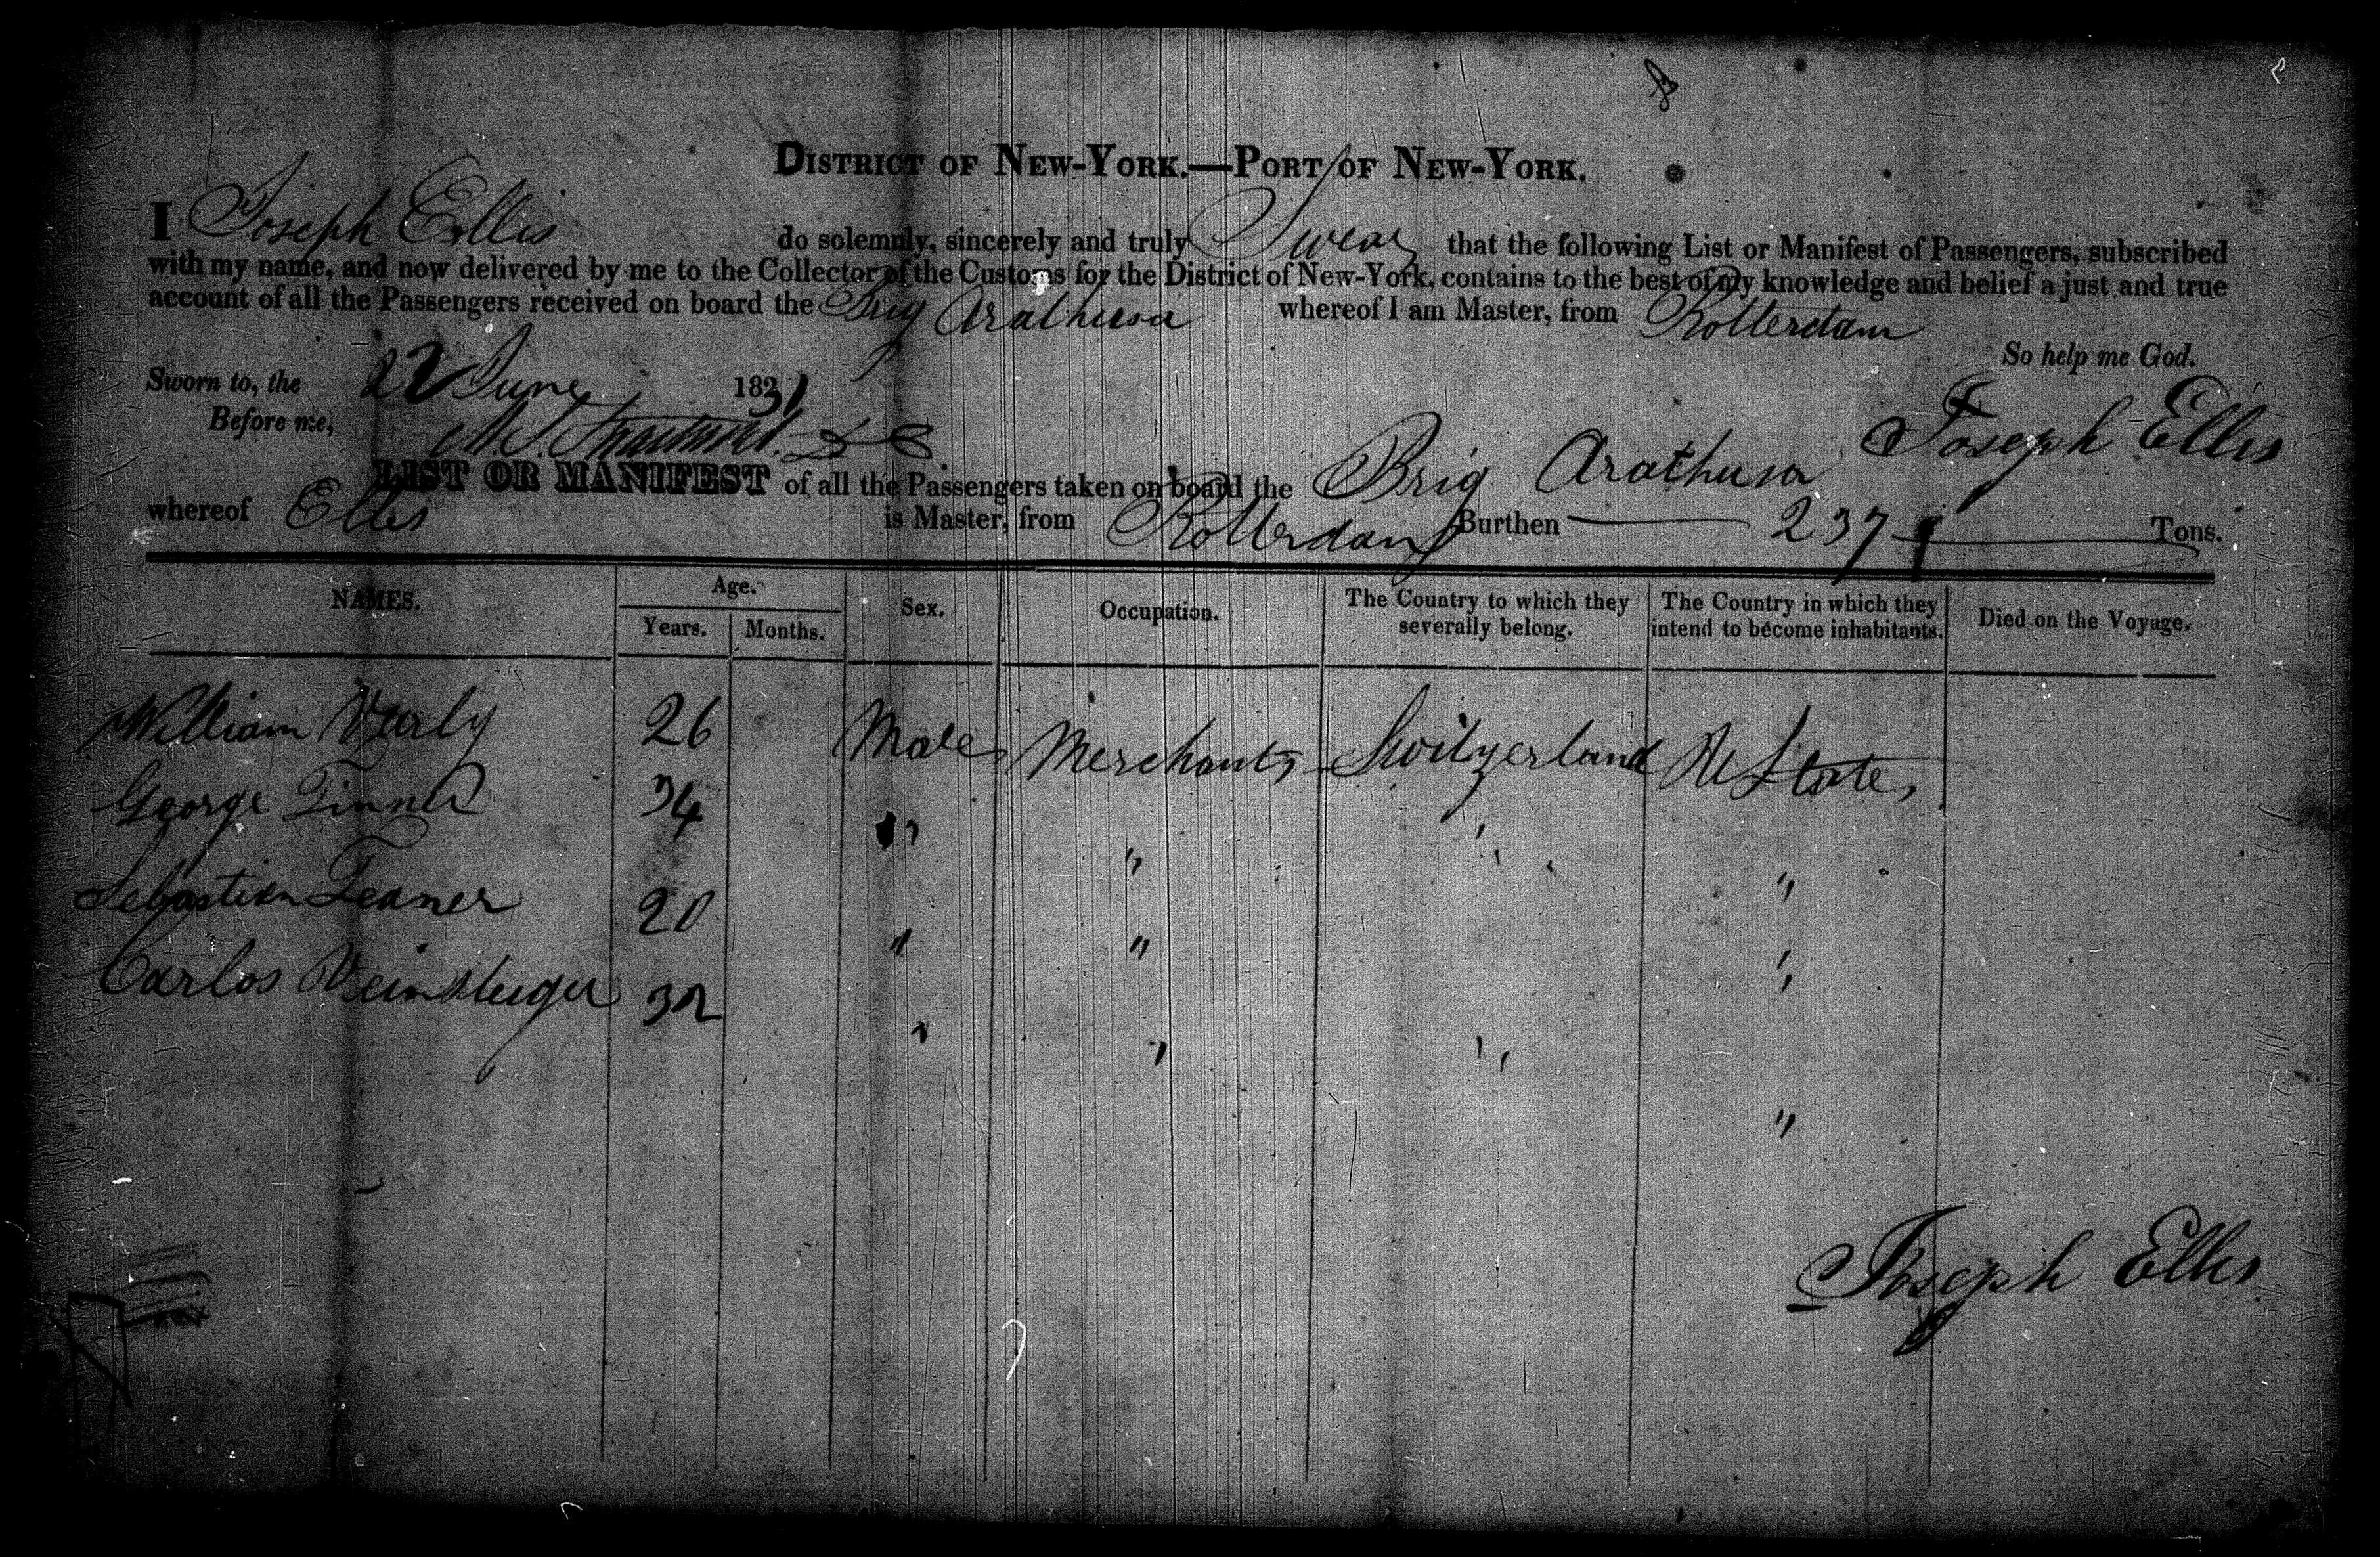 DISTRICT OF NEW-YORK.—PORT OF NEW-YORK.
I Joseph Ellis do solemnly, sincerely and truly Swear that the following List or Manifest of Passengers, subscribed
with my name, and now delivered by me to the Collector of the Customs for the District of New-York, contains to the best of my knowledge and belief a just and true
account of all the Passengers received on board the Brig Arathusa whereof I am Master, from Rotterdam
So help me God.
Sworn to, the 22 June 1831
Before me,
Joseph Ellis
LIST OR MANIFEST of all the Passengers taken on board the Brig Arathusa
whereof Ellis is Master, from Rotterdam Burthen 237 Tons.
NAMES. Age. Years. Months. Sex. Occupation. The Country to which they severally belong. The Country in which they intend to become inhabitants. Died on the Voyage.
William 26 Male Merchants Switzerland U States
George 34 " " " "
Sebastian 20 " " "
Carlos 32 " " " "
Joseph Ellis